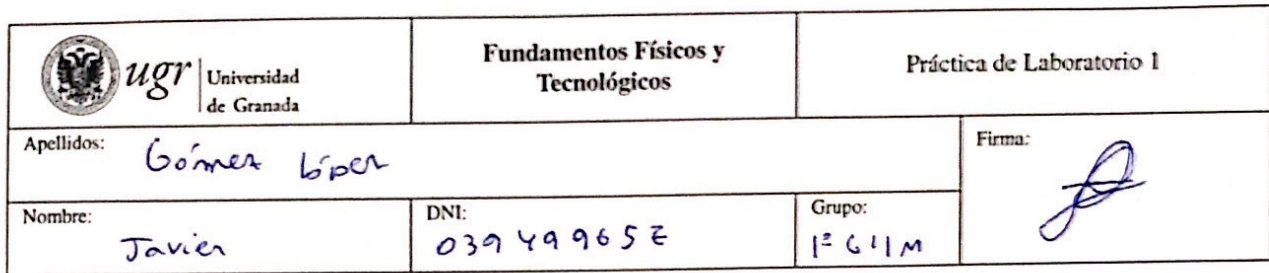 ugr Universidad de Granada
Fundamentos Físicos y
Tecnológicos
Práctica de Laboratorio 1
Apellidos: Gómez López
Firma:
Nombre: Javier
DNI: 03949965Z
Grupo: 1º GIIM